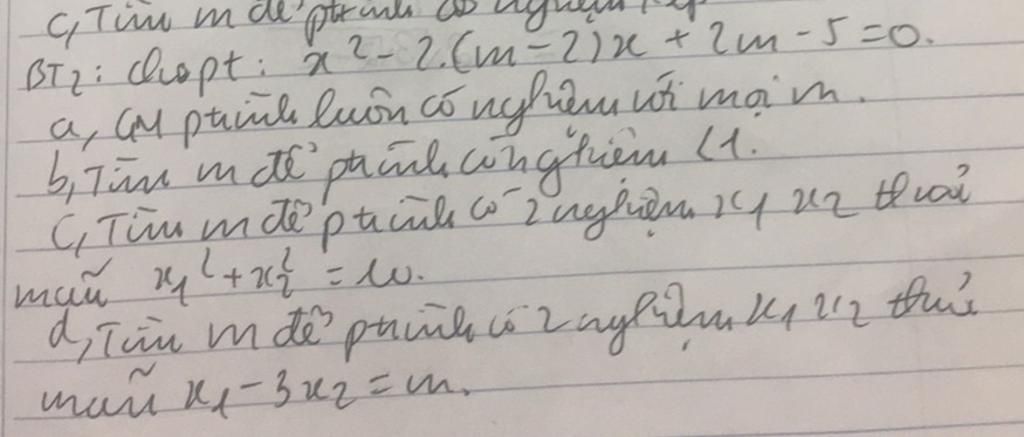 c, Tìm m để ptrình có nghiệm kép
BT2: Cho pt: x² - 2.(m-2)x + 2m - 5 = 0.
a, CM ptrình luôn có nghiệm với mọi m.
b, Tìm m để ptrình có nghiệm < 1.
c, Tìm m để ptrình có 2 nghiệm x₁ x₂ thoả
mãn x₁² + x₂² = 10.
d, Tìm m để ptrình có 2 nghiệm x₁ x₂ thoả
mãn x₁ - 3x₂ = m.